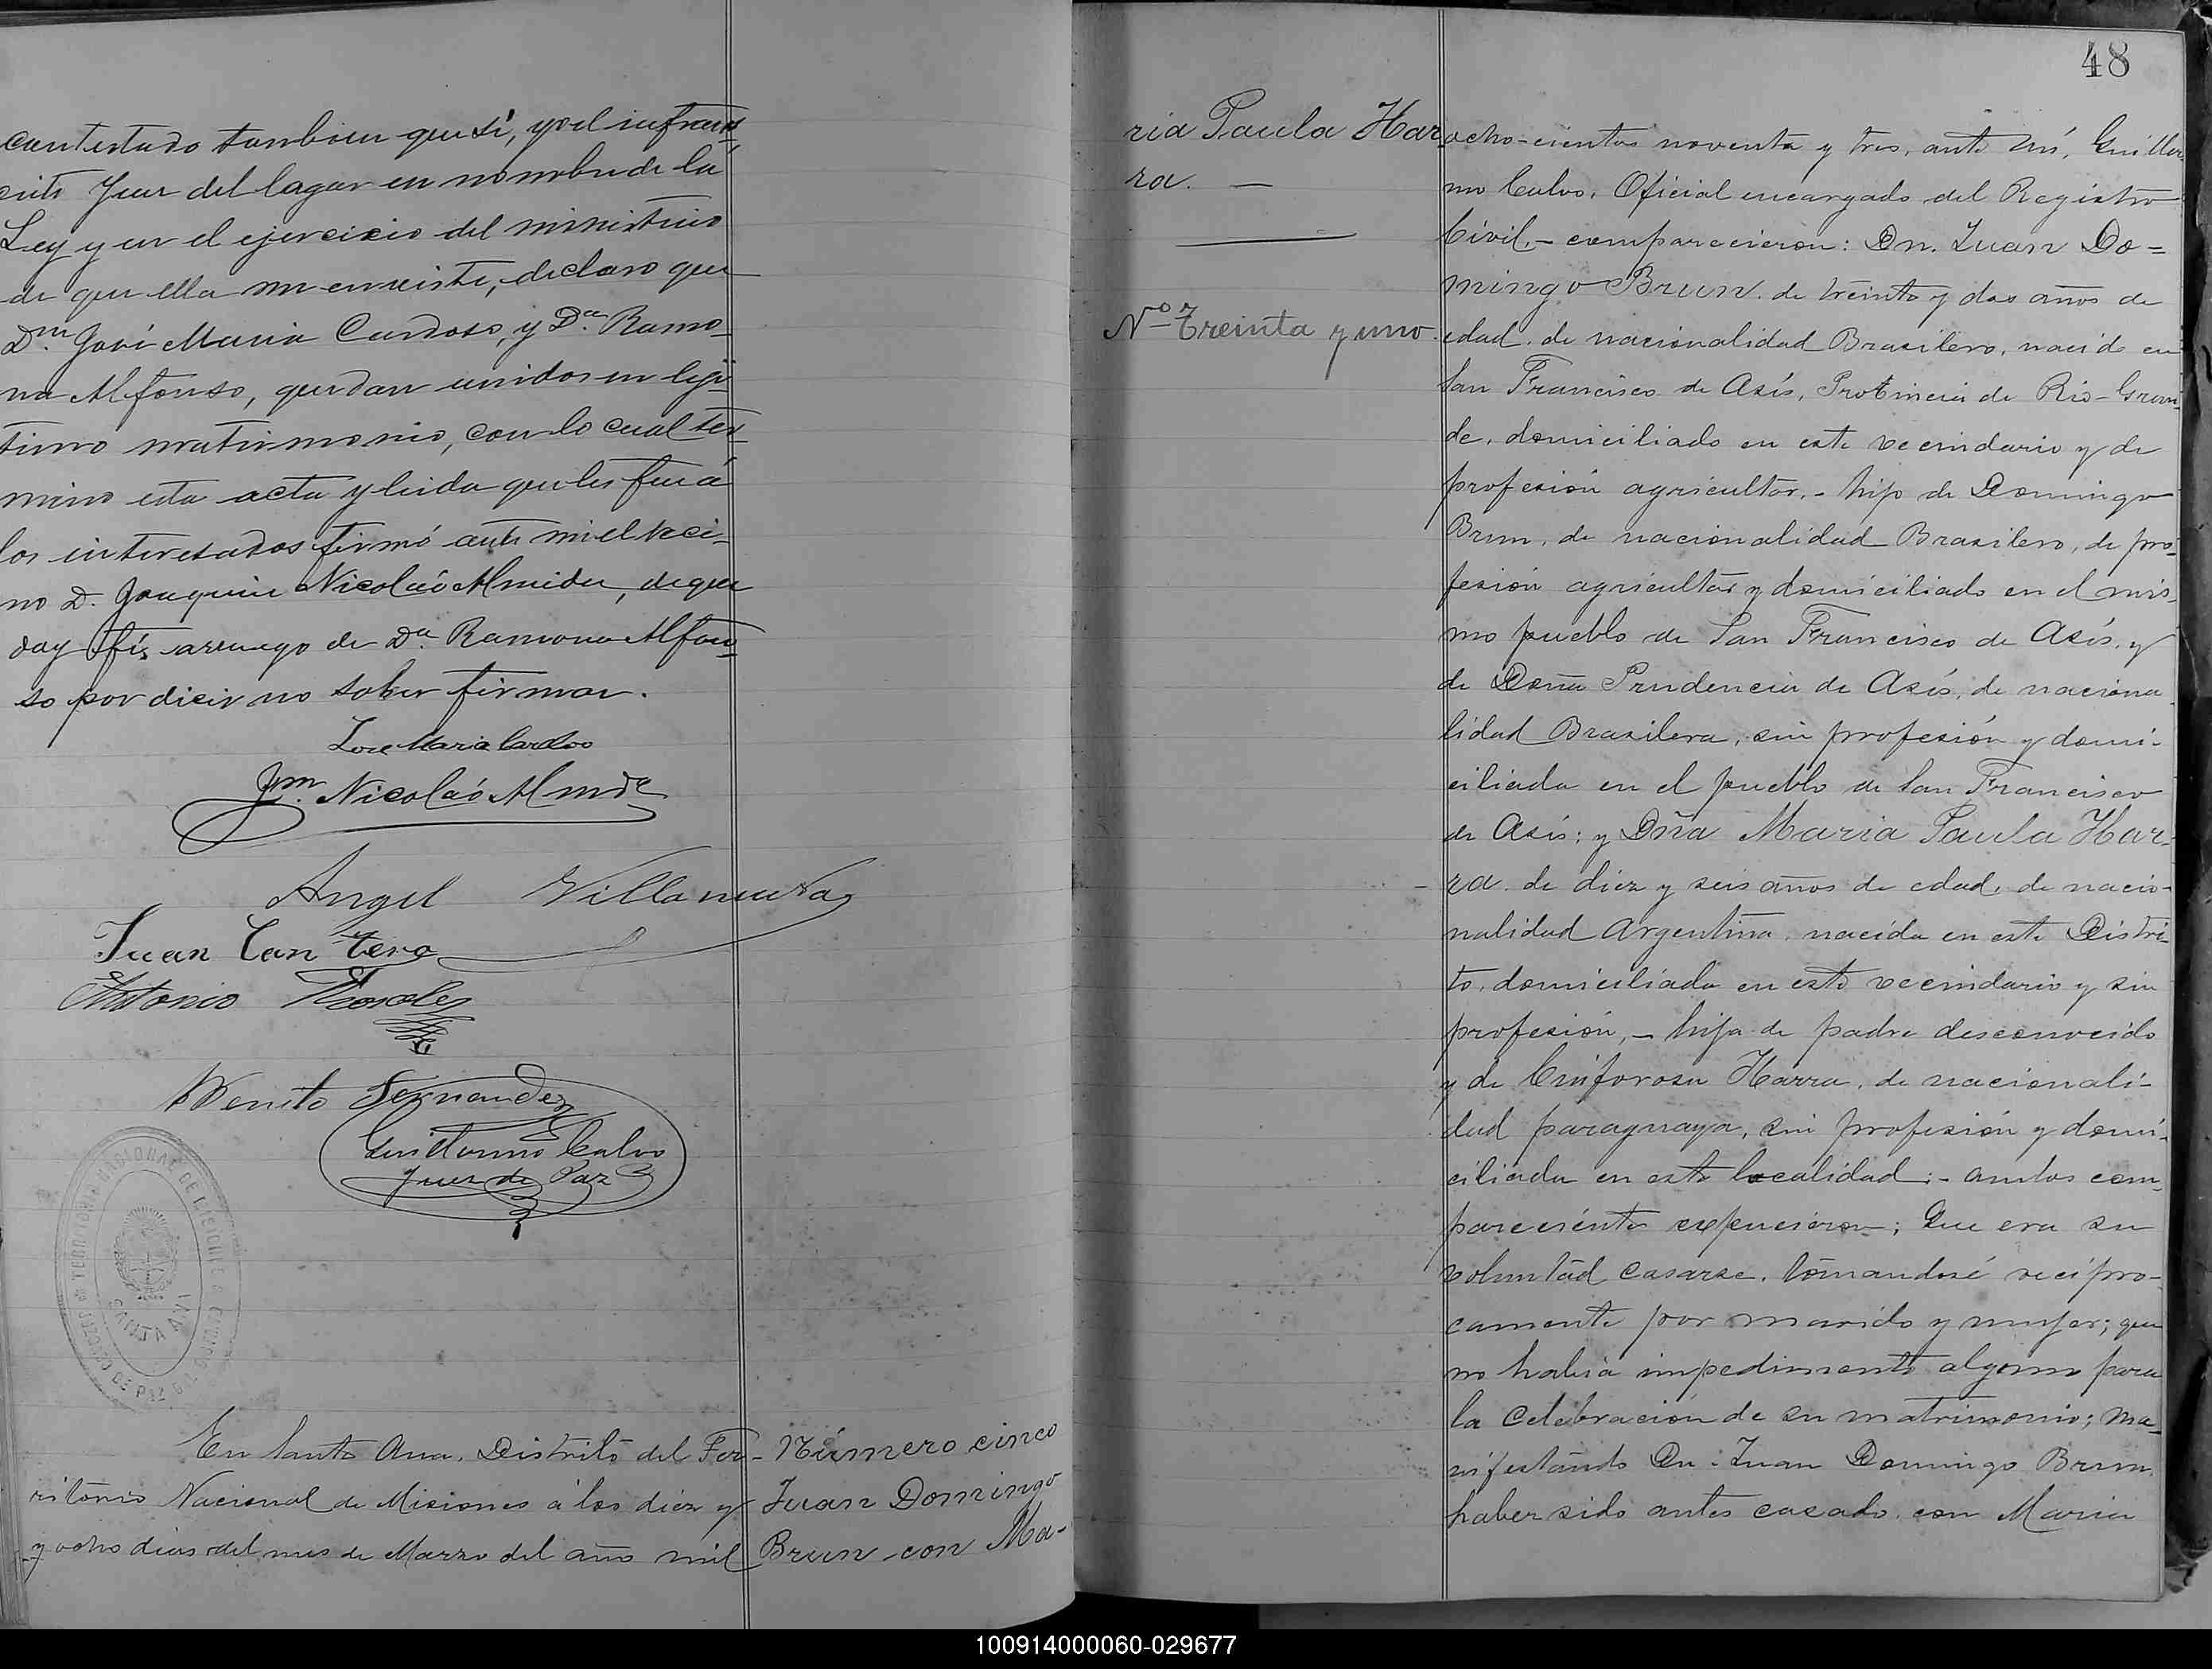 contestado tambien que si, y yo el infraes
crito Juez del lugar en nombre de la
Ley y en el ejercicio del ministerio
de que ella me enviste, declaro que
Dn. José Maria Cardoso, y Da. Ramo_
na Alfonso, quedan unidos en legi_
timo matrimonio, con lo cual ter_
mino esta acta y leida que les fué á
los interesados firmó ante mi el veci_
no D. Joaquin Nicolaó Almeida, de que
doy fé, arruego de Da. Ramona Alfon_
so por dicir no saber firmar.
Jose Maria Cardoso
Jm. Nicolaó Almda
Angel Villanueva
Juan Cantero
Antonio
Benito Fernandez
Guillermo Calvo
Juez de Paz
JUZGADO DE PAZ
SANTA ANA
En Santa Ana, Distrito del Ter-
ritorio Nacional de Misiones á los diez y
y ocho dias del mes de Marzo del año mil
Número cinco
Juan Domingo
Brun con Ma-
48
ria Paula Har
ra. —
No Treinta y uno.
ocho-cientos noventa y tres, ante mí, Guiller
mo Calvo, Oficial encargado del Registro
Civil,- comparecieron: Dn. Juan Do=
mingo Brun de treinta y dos años de
edad, de nacionalidad Brasilero, nacido en
San Francisco de Asís, Provincia de Rio-Gran
de, domiciliado en este vecindario y de
profesión agricultor,- hijo de Domingo
Brun, de nacionalidad Brasilero, de pro_
fesión agricultor y domiciliado en el mis_
mo pueblo de San Francisco de Asís, y
de Doña Prudencia de Asís, de naciona
lidad Brasilera, sin profesión y domi-
ciliada en el pueblo de San Francisco
de Asís; y Dña Maria Paula Har-
ra de diez y seis años de edad, de nacio-
nalidad Argentina, nacida en este Distri_
to, domiciliada en este vecindario y sin
profesión,- hija de padre desconocido
y de Cinforosa Harra, de nacionali-
dad paraguaya, sin profesión y domi-
ciliada en esta localidad;- ambos com_
parecientes expucieron; Que era su
voluntad casarse, tomandosé recipro-
camente por marido y mujer; que
no habia impedimento alguno para
la celebración de su matrimonio; ma_
nifestando Dn. Juan Domingo Brun
haber sido antes casado con Maria
100914000060-029677